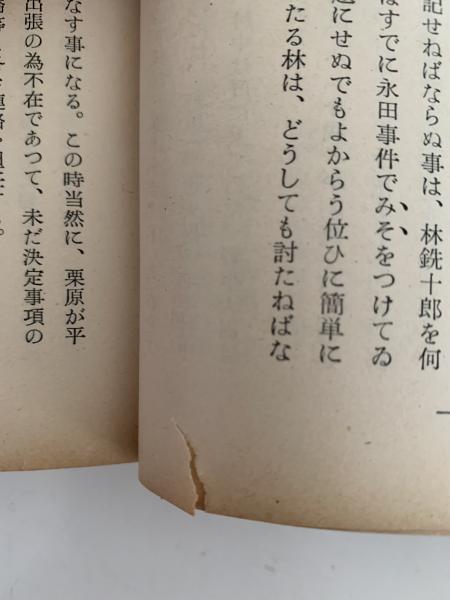 記せねばならぬ事は、林銑十郎を何
はすでに永田事件でみそをつけてゐ
にせぬでもよからう位ひに簡単に
たる林は、どうしても討たねばな
なす事になる。この時当然に、栗原が平
出張の為不在であつて、未だ決定事項の